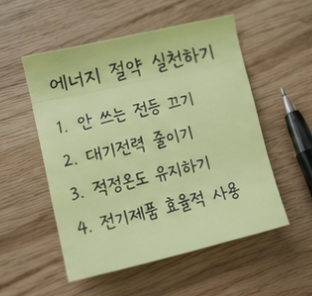 에너지 절약 실천하기
1. 안 쓰는 전등 끄기
2. 대기전력 줄이기
3. 적정온도 유지하기
4. 전기제품 효율적 사용